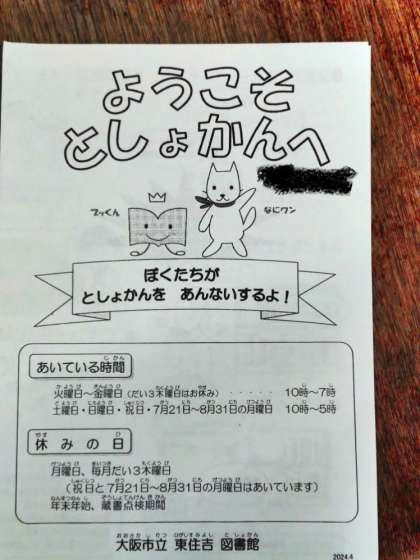 ようこそ
としょかんへ
ブッくん
なにワン
ぼくたちが
としょかんを あんないするよ！
あいている時間
火曜日～金曜日（だい3木曜日はお休み）・・・・・ 10時～7時
土曜日・日曜日・祝日・7月21日～8月31日の月曜日 10時～5時
休みの日
月曜日、毎月だい3木曜日
（祝日と7月21日～8月31日の月曜日はあいています）
年末年始、蔵書点検期間
大阪市立 東住吉 図書館
2024.4